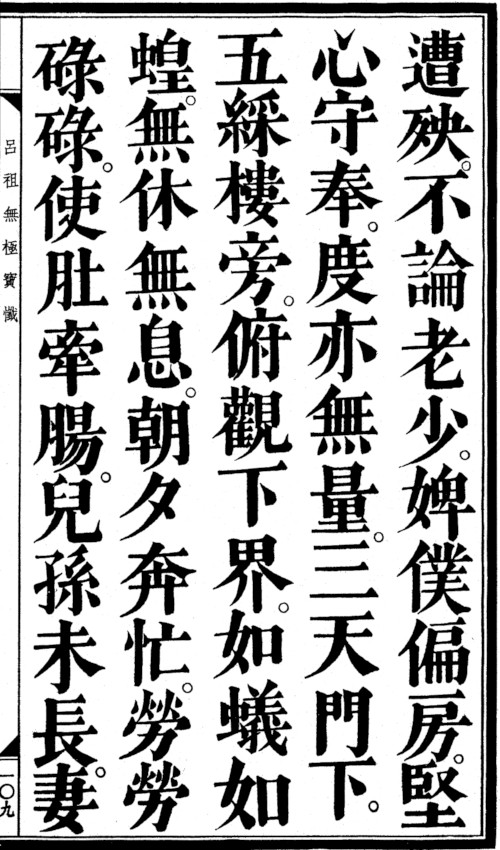 遭殃。不論老少。婢僕偏房。堅
心守奉。度亦無量。三天門下。
五綵樓旁。俯觀下界。如蟻如
蝗。無休無息。朝夕奔忙。勞勞
碌碌。使肚牽腸。兒孫未長。妻
呂祖無極寶懺
一〇九